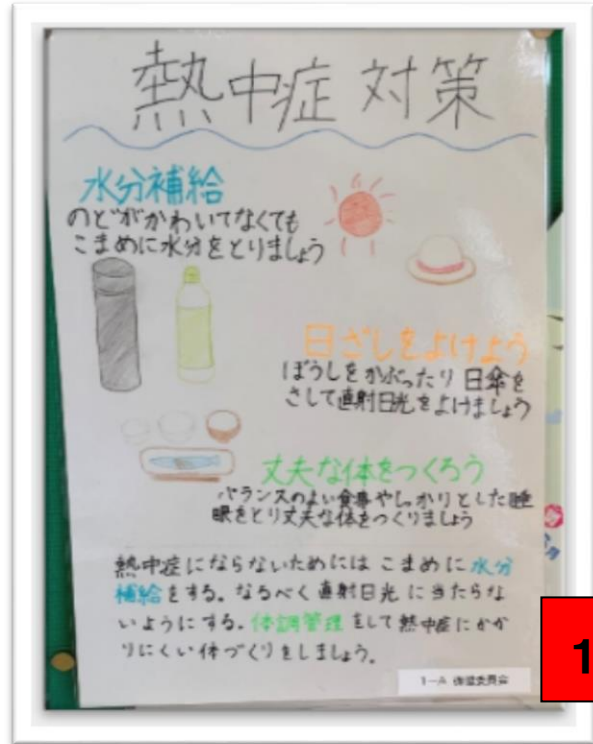 熱中症 対策
水分補給
のどがかわいてなくても
こまめに水分をとりましょう
日ざしをよけよう
ぼうしをかぶったり 日傘を
さして直射日光をよけましょう
丈夫な体をつくろう
バランスのよい食事やしっかりとした睡
眠をとり丈夫な体をつくりましょう
熱中症にならないためには こまめに水分
補給をする。なるべく直射日光に当たらな
いようにする。体調管理をして熱中症にかか
りにくい体づくりをしましょう。
1-A 保健委員会
1